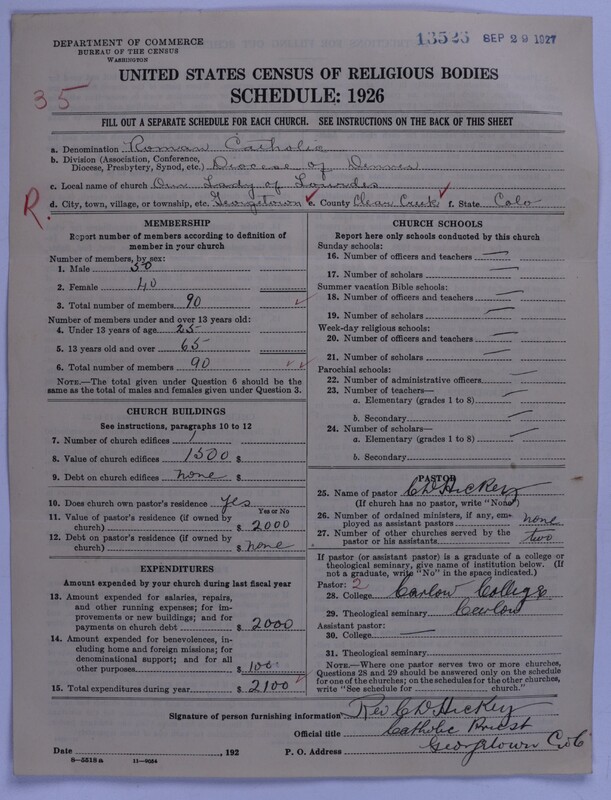 DEPARTMENT OF COMMERCE
BUREAU OF THE CENSUS
WASHINGTON
13525 SEP 29 1927
UNITED STATES CENSUS OF RELIGIOUS BODIES
SCHEDULE: 1926
35
FILL OUT A SEPARATE SCHEDULE FOR EACH CHURCH. SEE INSTRUCTIONS ON THE BACK OF THIS SHEET
a. Denomination Roman Catholic
b. Division (Association, Conference, Diocese, Presbytery, Synod, etc.) Diocese of Denver
c. Local name of church Our Lady of Lourdes
R. d. City, town, village, or township, etc. Georgetown e. County Clear Creek f. State Colo
MEMBERSHIP
Report number of members according to definition of
member in your church
Number of members, by sex:
1. Male 50
2. Female 40
3. Total number of members 90
Number of members under and over 13 years old:
4. Under 13 years of age 25
5. 13 years old and over 65
6. Total number of members 90
NOTE.—The total given under Question 6 should be the
same as the total of males and females given under Question 3.
CHURCH BUILDINGS
See instructions, paragraphs 10 to 12
7. Number of church edifices 1
8. Value of church edifices 1500 $
9. Debt on church edifices none $
10. Does church own pastor's residence yes
Yes or No
11. Value of pastor's residence (if owned by
church) $ 2000
12. Debt on pastor's residence (if owned by
church) $ none
EXPENDITURES
Amount expended by your church during last fiscal year
13. Amount expended for salaries, repairs,
and other running expenses; for im-
provements or new buildings; and for
payments on church debt $ 2000
14. Amount expended for benevolences, in-
cluding home and foreign missions; for
denominational support; and for all
other purposes $ 100
15. Total expenditures during year $ 2100
CHURCH SCHOOLS
Report here only schools conducted by this church
Sunday schools:
16. Number of officers and teachers —
17. Number of scholars —
Summer vacation Bible schools:
18. Number of officers and teachers —
19. Number of scholars —
Week-day religious schools:
20. Number of officers and teachers —
21. Number of scholars —
Parochial schools:
22. Number of administrative officers —
23. Number of teachers—
a. Elementary (grades 1 to 8) —
b. Secondary —
24. Number of scholars—
a. Elementary (grades 1 to 8) —
b. Secondary —
PASTOR
25. Name of pastor C D Hickey
(If church has no pastor, write "None")
26. Number of ordained ministers, if any, em-
ployed as assistant pastors none
27. Number of other churches served by the
pastor or his assistants two
If pastor (or assistant pastor) is a graduate of a college or
theological seminary, give name of institution below. (If
not a graduate, write "No" in the space indicated.)
Pastor: 2
28. College Carlow College
29. Theological seminary Carlow
Assistant pastor:
30. College —
31. Theological seminary
NOTE.—Where one pastor serves two or more churches,
Questions 28 and 29 should be answered only on the schedule
for one of the churches; on the schedules for the other churches,
write "See schedule for church."
Signature of person furnishing information Rev C D Hickey
Official title Catholic Priest
Date , 192 P. O. Address Georgetown Colo
8—5518 a 11—9084